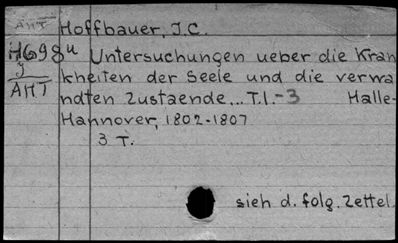 AHT Hoffbauer, J.C.
H698u Untersuchungen ueber die Kran
g kheiten der Seele und die verwa
AHT ndten Zustaende... T.1.-3 Halle-
Hannover, 1802-1807
3 T.
sieh d. folg. Zettel.